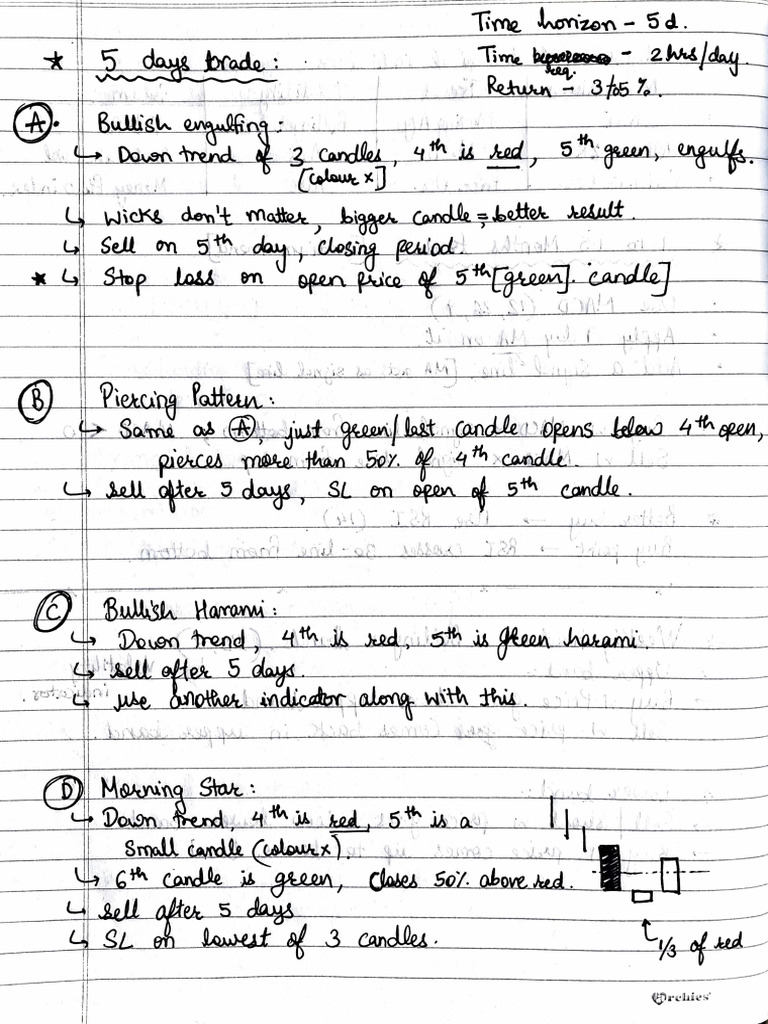 Time horizon - 5 d.
* 5 days trade:
Time req. - 2 hrs/day.
Return - 3 to 5 %.
A. Bullish engulfing:
↳ Down trend of 3 candles, 4th is red, 5th green, engulfs.
[colour x]
↳ Wicks don't matter, bigger candle = better result.
↳ Sell on 5th day, closing period
* ↳ Stop loss on open price of 5th [green]. candle]
B Piercing Pattern:
↳ Same as A, just green/last candle opens below 4th open,
pierces more than 50% of 4th candle.
↳ Sell after 5 days, SL on open of 5th candle.
C Bullish Harami:
↳ Down trend, 4th is red, 5th is green harami.
↳ Sell after 5 days.
↳ use another indicator along with this.
D Morning Star:
↳ Down trend, 4th is red, 5th is a
Small candle (colour x)
↳ 6th candle is green, Closes 50% above red.
↳ Sell after 5 days
↳ SL on lowest of 3 candles.
1/3 of red
Archies